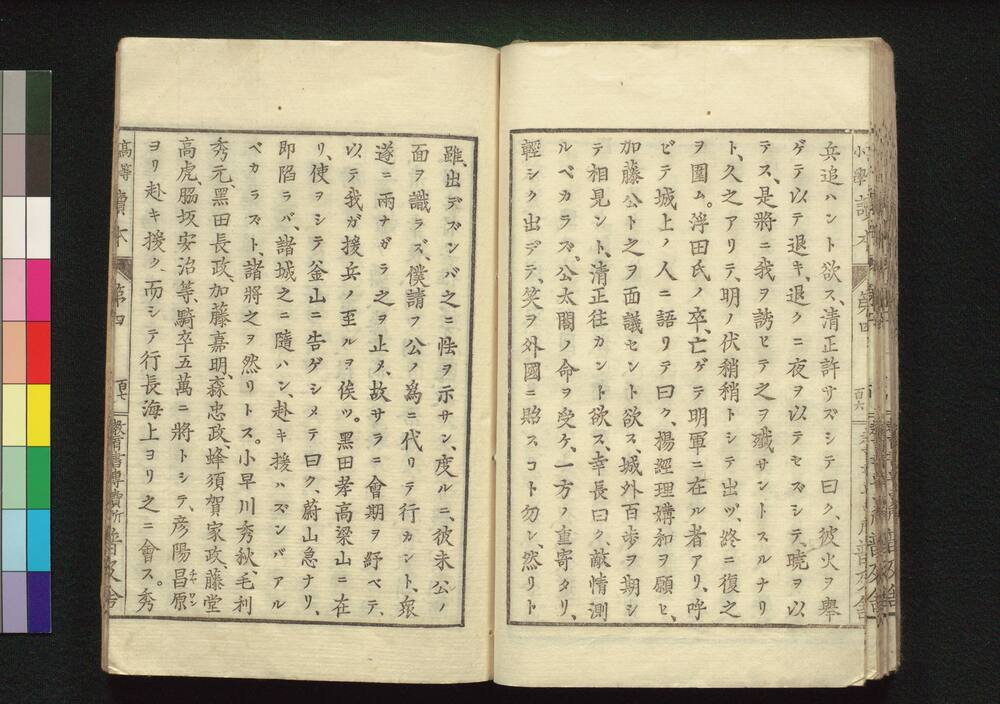 小學讀本 第四 百六
兵追ハント欲ス、清正許サズシテ曰ク、彼火ヲ擧
ゲテ以テ退キ、退クニ夜ヲ以テセズシテ、曉ヲ以
テス、是將ニ我ヲ誘ヒテ之ヲ殲サントスルナリ
ト、久之アリテ、明ノ伏稍稍トシテ出ヅ、終ニ復之
ヲ圍ム。浮田氏ノ卒、亡ゲテ明軍ニ在ル者アリ、呼
ビテ城上ノ人ニ語リテ曰ク、楊經理媾和ヲ願ヒ、
加藤公ト之ヲ面議セント欲ス、城外百歩ヲ期シ
テ相見ント、清正往カント欲ス、幸長曰ク、敵情測
ルベカラズ、公太閤ノ命ヲ受ケ、一方ノ重寄タリ、
輕シク出デテ、笑ヲ外國ニ貽スコト勿レ、然リト
雖、出デズンバ之ニ怯ヲ示サン、度ルニ、彼未公ノ
面ヲ識ラズ、僕請フ公ノ為ニ代リテ行カント、衆
遂ニ兩ナガラ之ヲ止メ、故サラニ會期ヲ紓ベテ、
以テ我ガ援兵ノ至ルヲ俟ツ。黑田孝高梁山ニ在
リ、使ヲシテ釜山ニ告ゲシメテ曰ク、蔚山急ナリ、
即陷ラバ、諸城之ニ隨ハン、赴キ援ハズンバアル
ベカラズト、諸將之ヲ然リトス。小早川秀秋、毛利
秀元、黑田長政、加藤嘉明、森忠政、蜂須賀家政、藤堂
高虎、脇坂安治等、騎卒五萬ニ將トシテ、彦陽昌原
ヨリ赴キ援ク、而シテ行長海上ヨリ之ニ會ス。秀
高等讀本 第四 百七 教育書專賣所 普及舎